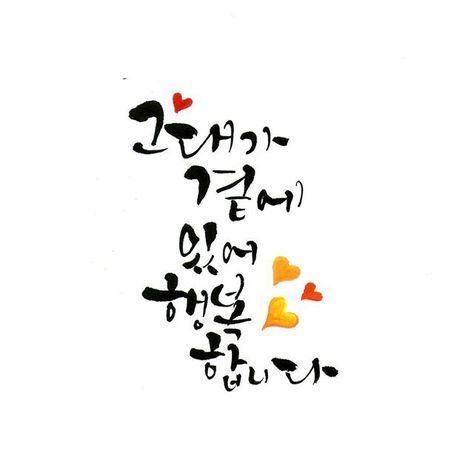 그대가
곁에
있어
행복
합니다